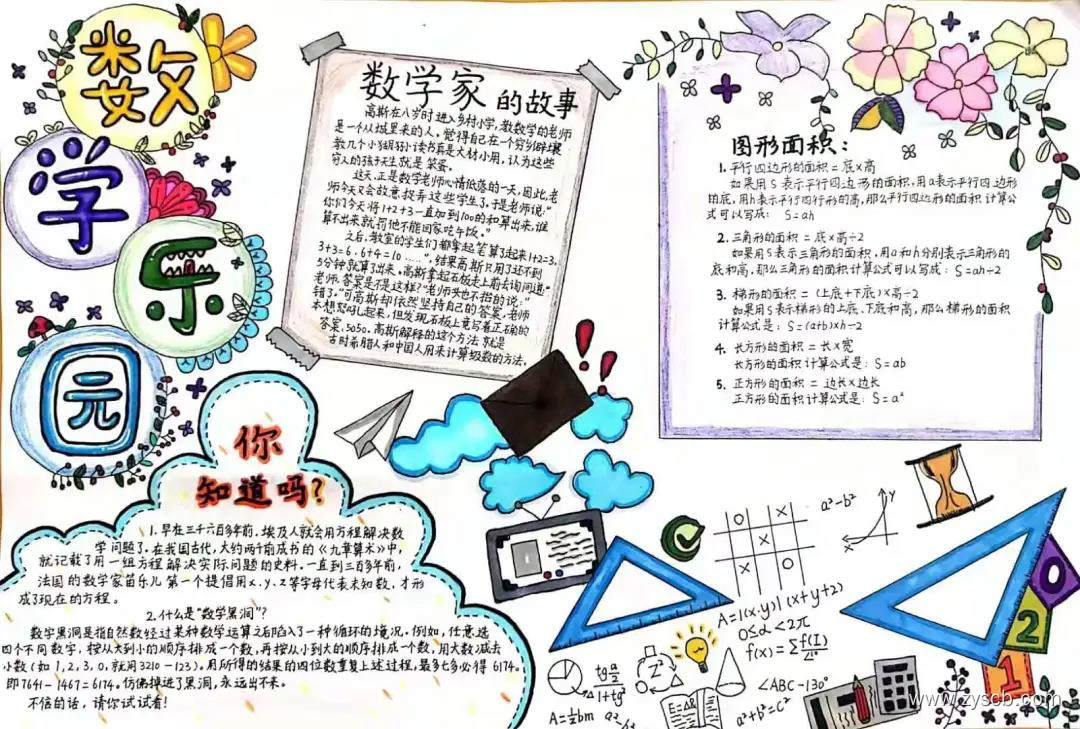 数
学
乐
园
数学家的故事
高斯在八岁时进入乡村小学,教数学的老师
是一个从城里来的人,觉得自己在一个穷乡僻壤
教几个小猢狲读书真是大材小用,认为这些
穷人的孩子天生就是笨蛋。
这天,正是数学老师心情低落的一天,因此,老
师今天又会故意捉弄这些学生了,于是老师说:"
你们今天将1+2+3一直加到100的和算出来,谁
算不出来就罚他不能回家吃午饭。"
之后,教室的学生们都拿起笔算了起来1+2=3,
3+3=6,6+4=10……",结果高斯只用了还不到
5分钟就算了出来。高斯拿起石板走上前去询问道:"
老师,答案是不是这样?"老师头也不抬的说:"
错了。"可高斯却依然坚持自己的答案,老师
本想怒吼起来,但发现石板上竟写着正确的
答案,5050。高斯解释的这个方法就是
古时希腊人和中国人用来计算级数的方法。
图形面积:
1.平行四边形的面积=底×高
如果用S表示平行四边形的面积,用a表示平行四边形
的底,用h表示平行四行形的高,那么平行四边形的面积计算公
式可以写成: S=ah
2.三角形的面积=底×高÷2
如果用S表示三角形的面积,用a和h分别表示三角形的
底和高,那么三角形的面积计算公式可以写成:S=ah÷2
3. 梯形的面积=(上底+下底)×高÷2
如果用S表示梯形的上底、下底和高,那么梯形的面积
计算公式是:S=(a+b)×h÷2
4. 长方形的面积=长×宽
长方形的面积计算公式是:S=ab
5. 正方形的面积=边长×边长
正方形的面积计算公式是:S=a²
你
知道吗?
1.早在三千六百多年前,埃及人就会用方程解决数
学问题了,在我国古代,大约两千前成书的《九章算术》中,
就记载了用一组方程解决实际问题的史料。一直到三百多年前,
法国的数学家笛乐儿第一个提倡用x.y.z等字母代表未知数,才形
成了现在的方程。
2.什么是"数学黑洞"?
数字黑洞是指自然数经过某种数学运算之后陷入了一种循环的境况。例如,任意选
四个不同数字,按从大到小的顺序排成一个数,再按从小到大的顺序排成一个数,用大数减去
小数(如1,2,3,0,就用3210-123),用所得的结果的四位数重复上述过程,最多七步必得6174。
即7641-1467=6174。仿佛掉进了黑洞,永远出不来。
不信的话,请你试试看!
a²-b²
y
x
A=1(x·y)(x+y+2)
0≤α<2π
∠ABC-130°
a²+b²=c²
A=½bm
0
2
1
www.zyscb.com